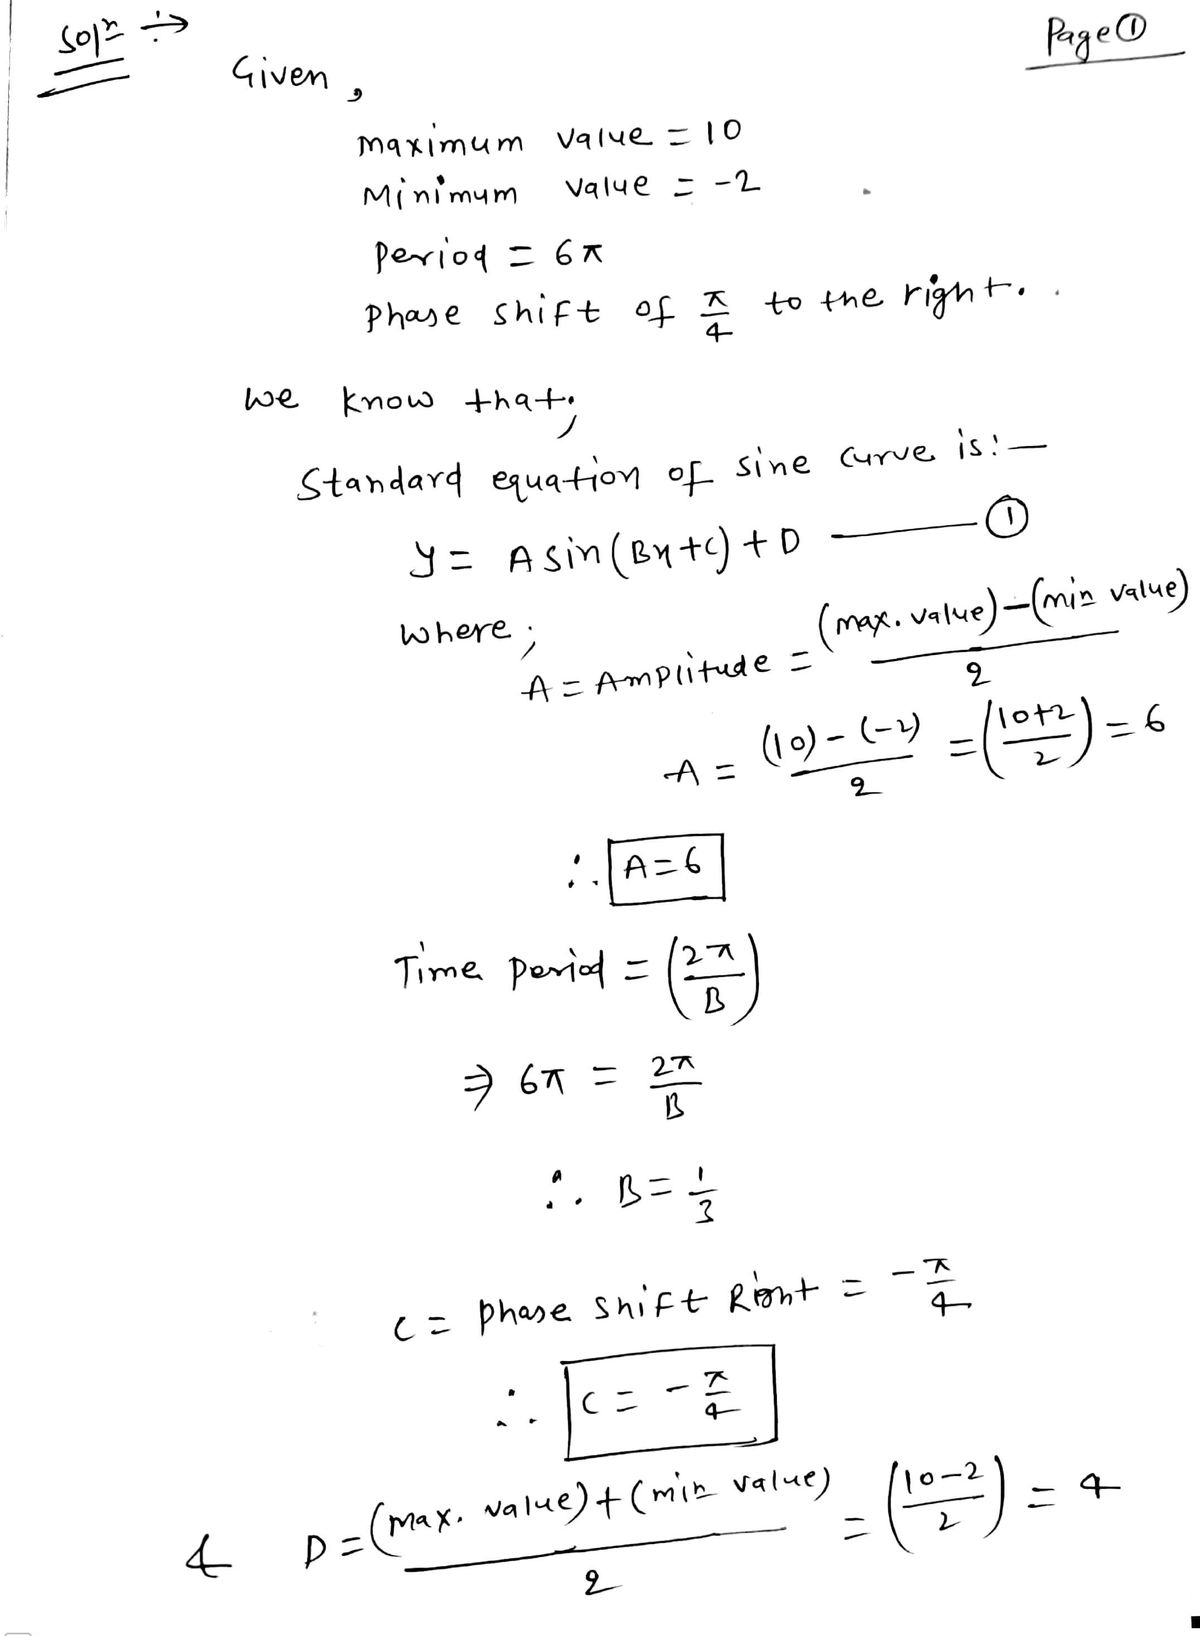 Soln ÷>
Page ①
Given,
maximum value = 10
Minimum value = -2
Period = 6π
Phase shift of π/4 to the right.
we know that;
Standard equation of sine curve is:—
y = A sin(Bx+c) + D ——— ①
where;
A = Amplitude = (max. value)-(min value)/2
A = (10)-(-2)/2 = (10+2/2) = 6
∴ A=6
Time period = (2π/B)
⇒ 6π = 2π/B
∴ B = 1/3
C = Phase shift Right = -π/4
∴ C = -π/4
& D = (max. value)+(min value)/2 = (10-2/2) = 4